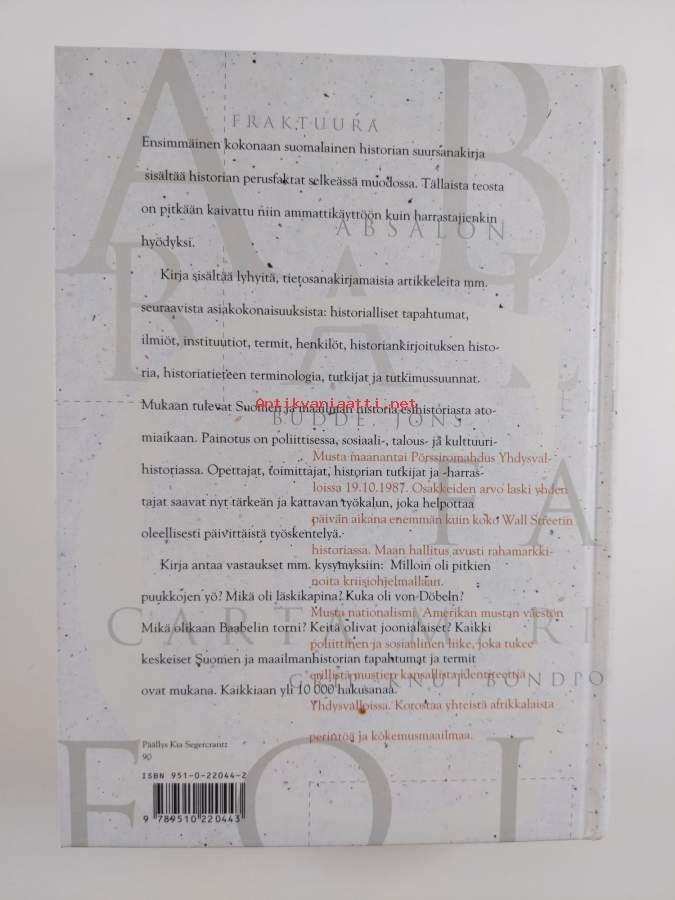 A B
FRAKTUURA
Ensimmäinen kokonaan suomalainen historian suursanakirja
sisältää historian perusfaktat selkeässä muodossa. Tällaista teosta
on pitkään kaivattu niin ammattikäyttöön kuin harrastajienkin
ABSALON
hyödyksi.
Kirja sisältää lyhyitä, tietosanakirjamaisia artikkeleita mm.
seuraavista asiakokonaisuuksista: historialliset tapahtumat,
ilmiöt, instituutiot, termit, henkilöt, historiankirjoituksen histo-
ria, historiatieteen terminologia, tutkijat ja tutkimussuunnat.
Mukaan tulevat Suomen ja maailman historia esihistoriasta ato-
Antikvariaatti.net
BUDDE, JÖNS
miaikaan. Painotus on poliittisessa, sosiaali-, talous- ja kulttuuri-
historiassa. Opettajat, toimittajat, historian tutkijat ja -harras-
tajat saavat nyt tärkeän ja kattavan työkalun, joka helpottaa
oleellisesti päivittäistä työskentelyä.
Kirja antaa vastaukset mm. kysymyksiin: Milloin oli pitkien
puukkojen yö? Mikä oli läskikapina? Kuka oli von Döbeln?
Mikä olikaan Baabelin torni? Keitä olivat joonialaiset? Kaikki
keskeiset Suomen ja maailmanhistorian tapahtumat ja termit
ovat mukana. Kaikkiaan yli 10 000 hakusanaa.
Musta maanantai Pörssiromahdus Yhdysval-
loissa 19.10.1987. Osakkeiden arvo laski yhden
päivän aikana enemmän kuin koko Wall Streetin
historiassa. Maan hallitus avusti rahamarkki-
noita kriisiohjelmallaan.
Musta nationalismi Amerikan mustan väestön
poliittinen ja sosiaalinen liike, joka tukee
erillistä mustien kansallista identiteettiä
Yhdysvalloissa. Korostaa yhteistä afrikkalaista
perintöä ja kokemusmaailmaa.
CARTA MARI
KNUT BONDPO
Päällys Kia Segercrantz
90
ISBN 951-0-22044-2
9 789510 220443